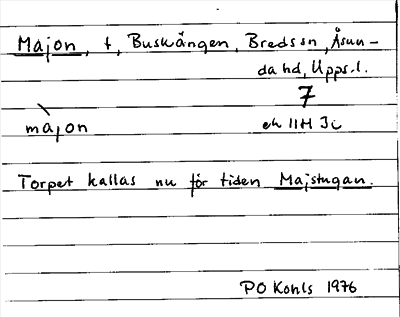 Majon, t, Buskängen, Breds sn, Åsun-
da hd, Upps. l.
7
màjon ek 11H 3c
Torpet kallas nu för tiden Majstugan.
PO Kohls 1976